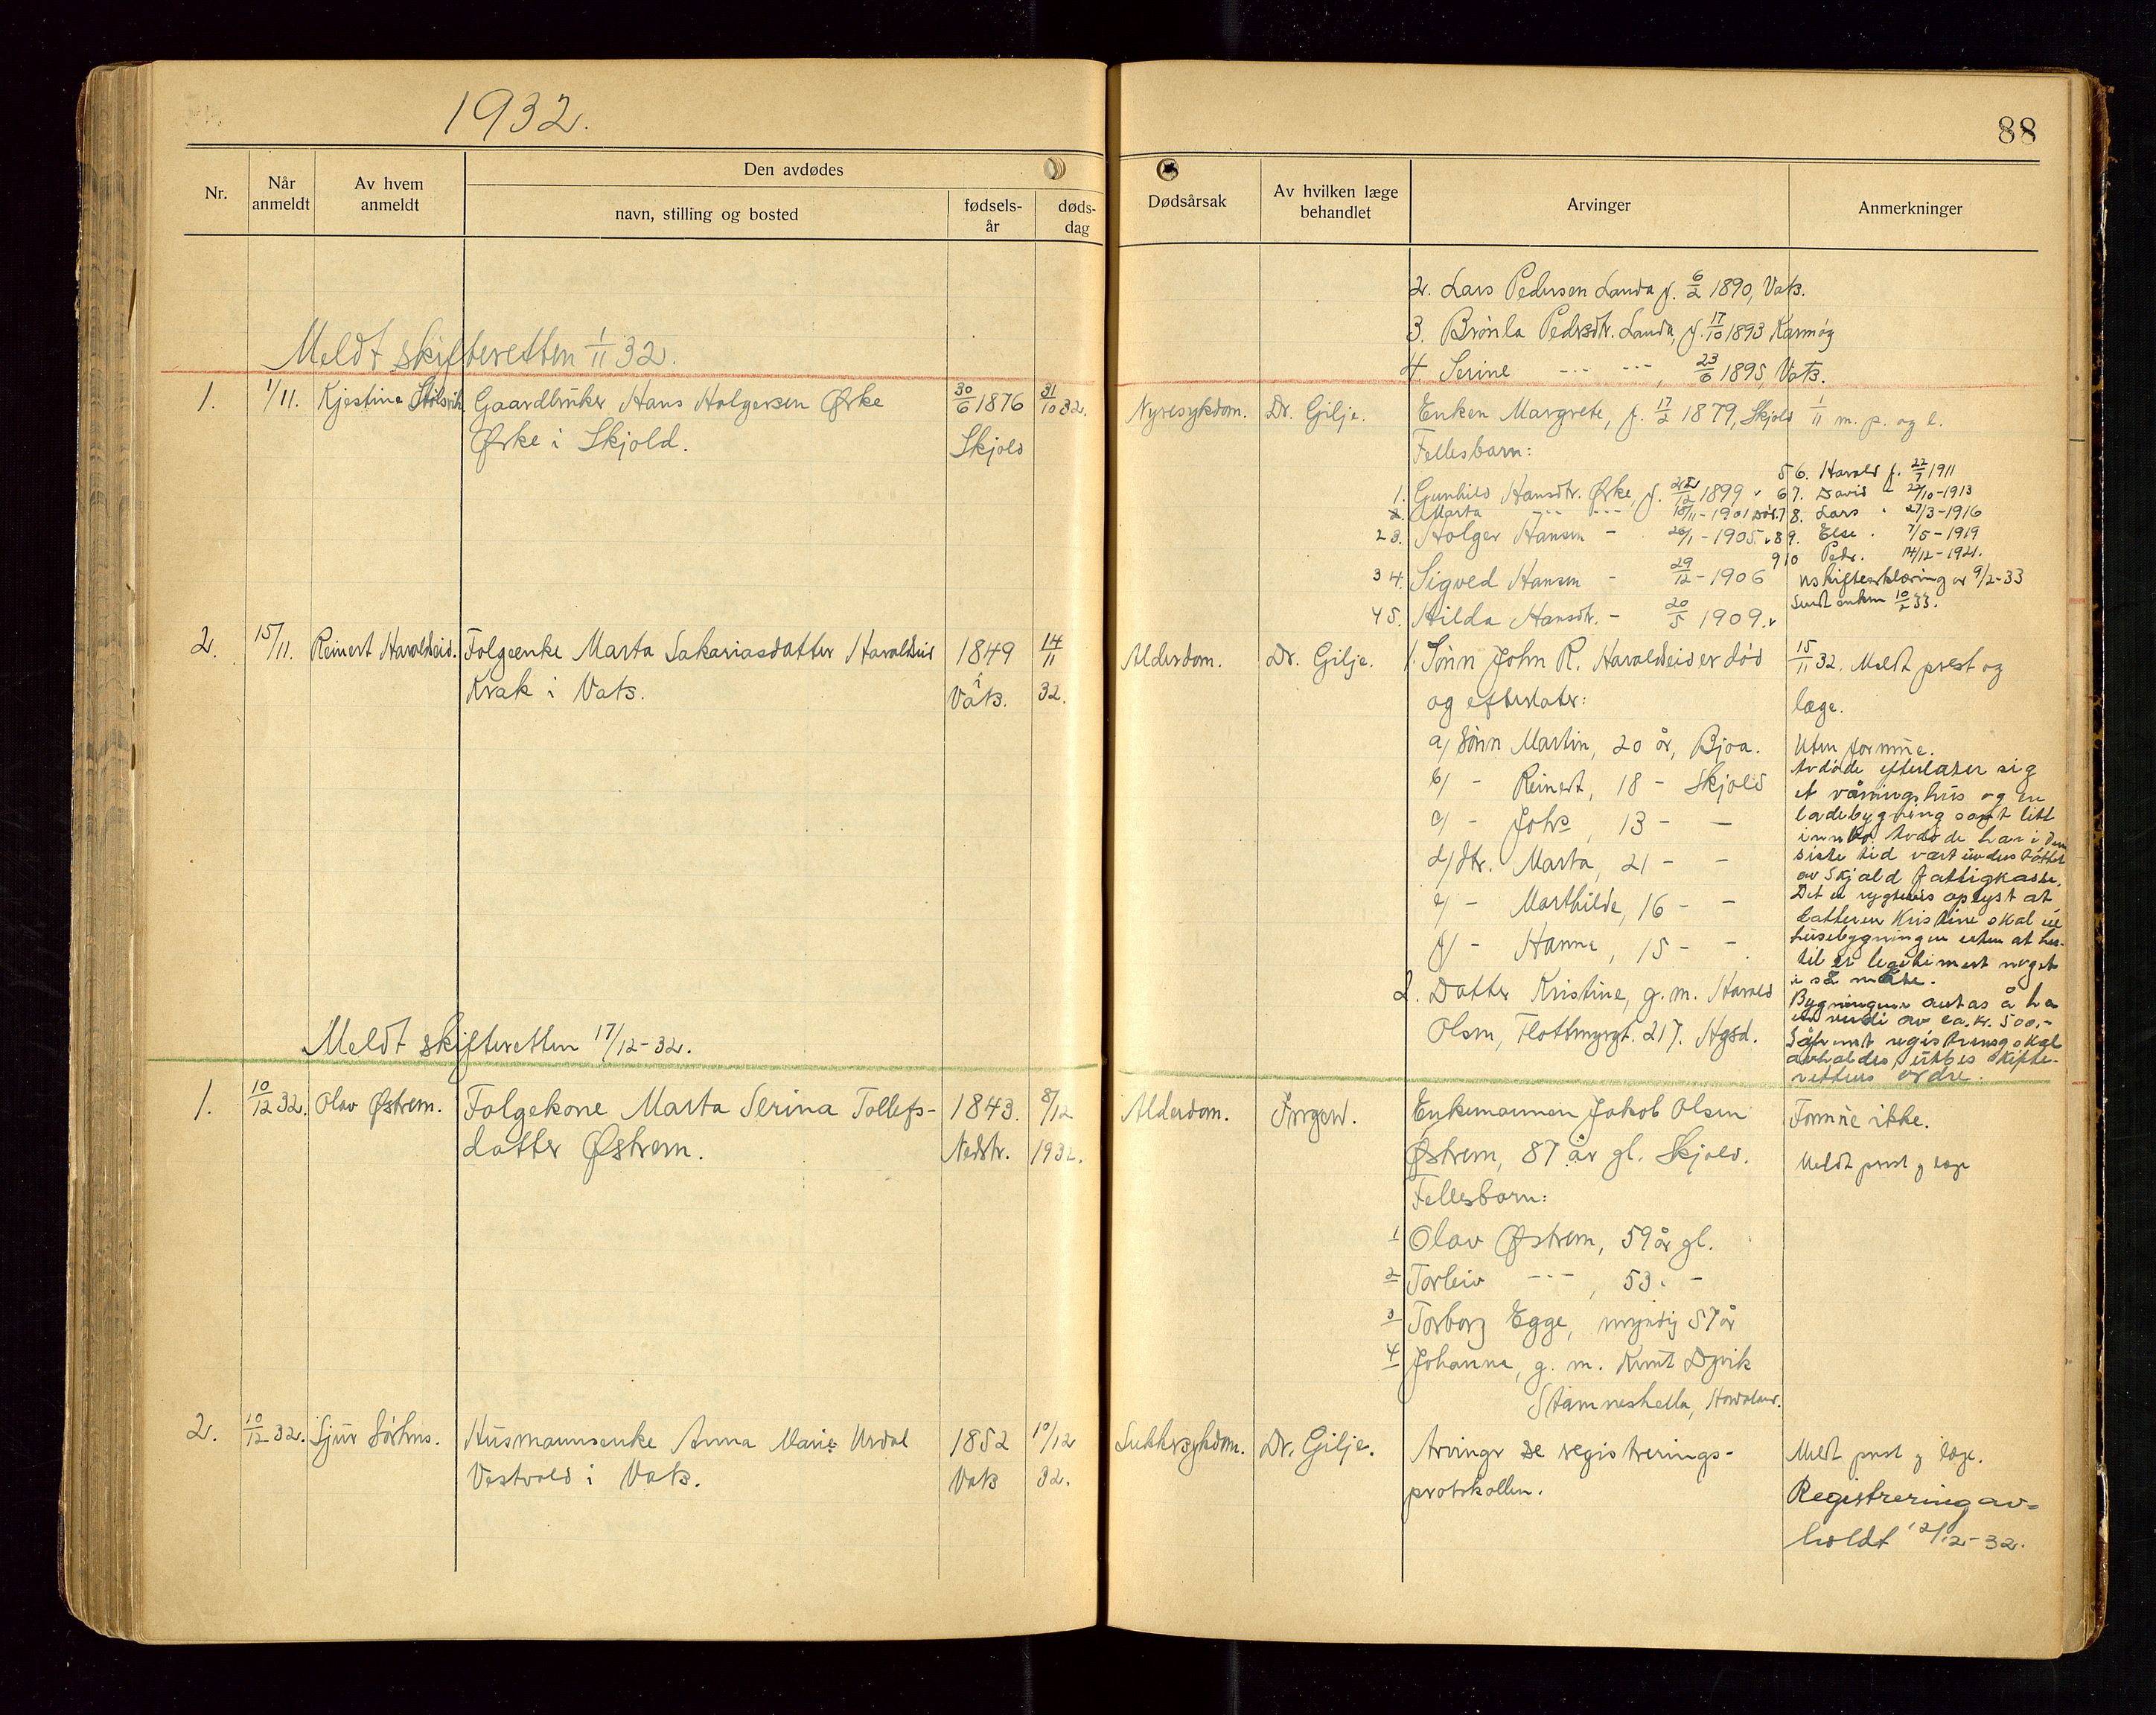 1932.
88
Nr.
Når anmeldt
Av hvem anmeldt
Den avdødes
navn, stilling og bosted
fødsels-år
døds-dag
Dødsårsak
Av hvilken læge behandlet
Arvinger
Anmerkninger
2. Lars Pedersen Landa f. 6/2 1890, Vats.
3. Brønla Pedersdtr. Landa, f. 17/10 1893 Karmøy
4. Serine --- ---, 23/6 1895, Vats.
Meldt skifteretten 1/11 32.
1. 1/11. Kjestine Gaardbruker Hans Holgersen Ørke 30/6 1876 31/10 32. Nyresykdom. Dr. Gilje. Enken Margrete, f. 17/2 1879, Skjold 1/11 m. p. og l.
Ørke i Skjold. Skjold
Fellesbarn:
1. Gunhild Hansdtr. Ørke, f. 1899
2. Marta --- --- 18/11 - 1901 død.
2 3. Holger Hansen - 26/1 - 1905.
3 4. Sigved Hansen - 29/12 - 1906
4 5. Hilda Hansdtr. - 20/5 1909.
5 6. Harald f. 22/7 1911
6 7. David - 22/10 - 1913
7 8. Lars " 27/3 - 1916
8 9. Else . 7/5 - 1919
9 10 Peder. 14/12 - 1921.
uskifteerklæring av 9/2-33
Sendt enken 10/2 33.
2. 15/11. Reinert Haraldseid. Folgeenke Marta Sakariasdatter Haraldseid 1849 14/11 Alderdom. Dr. Gilje. 1. Sønn John R. Haraldseid er død
Krak i Vats. i Vats. 32. og efterlater:
a/ Sønn Martin, 20 år, Bjoa.
b/ - Reinert, 18 - Skjold
c/ - Johs, 13 - -
d/ dtr. Marta, 21 - -
e/ - Marthilde, 16 - -
f/ - Hanna, 15 - -
2. Datter Kristine, g.m. Harald
Olsen, Flottmyrgt. 217. Hgsd.
15/11 32. Meldt prest og
læge.
Uten formue.
Avdøde efterlater sig
et våningshus og en
ladebygning samt litt
innbo. Avdøde har i den
siste tid vært understøttet
av Skjold fattigkasse.
Det er rygtevis oplyst at
datteren Kristine skal eie
husebygningen uten at her-
til er legitimert noget
i så måte.
Bygningene antas å ha
en verdi av ca. kr. 500,-
Såfremt registrering skal
avholdes, utbes skifte-
rettens ordre.
Meldt skifteretten 17/12-32.
1. 10/12 32. Olav Østrem. Folgekone Marta Serina Tollefs- 1843. 8/12 Alderdom. Ingen. Enkemannen Jakob Olsen Formue ikke.
datter Østrem. Nedstr. 1932. Østrem, 87 år gl. Skjold. Meldt prest og læge
Fellesbarn:
1 Olav Østrem, 59 år gl.
2 Torleiv ---, 53. -
3 Torborg Egge, myndig 57 år
4 Johanna, g. m. Knut Dyvik
Stamneshella, Hordaland.
2. 10/12 32. Sjur Sørhus. Husmannsenke Anna Marie Urdal 1852 10/12 Sukkersykdom. Dr. Gilje. Arvinger se registrerings- Meldt prest og læge.
Vestvold i Vats. Vats 32. protokollen. Registrering av-
holdt 12/12-32.